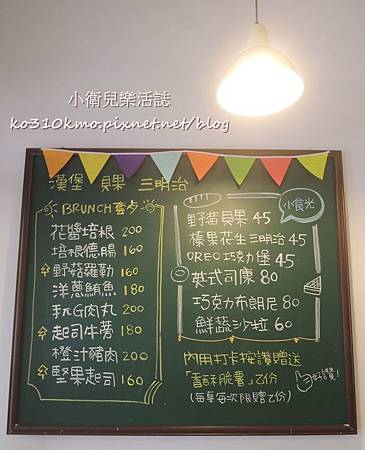 小衛兒樂活誌
ko310kmo.pixnet.net/blog
漢堡 貝果 三明治
BRUNCH套夕
花醬培根 200
培根德腸 160
野菇羅勒 160
洋蔥鮪魚 180
玩G肉丸 200
起司牛蒡 180
橙汁豬肉 200
堅果起司 160
小食光
野莓貝果 45
榛果花生三明治 45
OREO巧克力堡 45
英式司康 80
巧克力布朗尼 80
鮮蔬沙拉 60
內用打卡按讚贈送
「香酥脆薯」乙份
(每桌每次限贈乙份)
好讚!